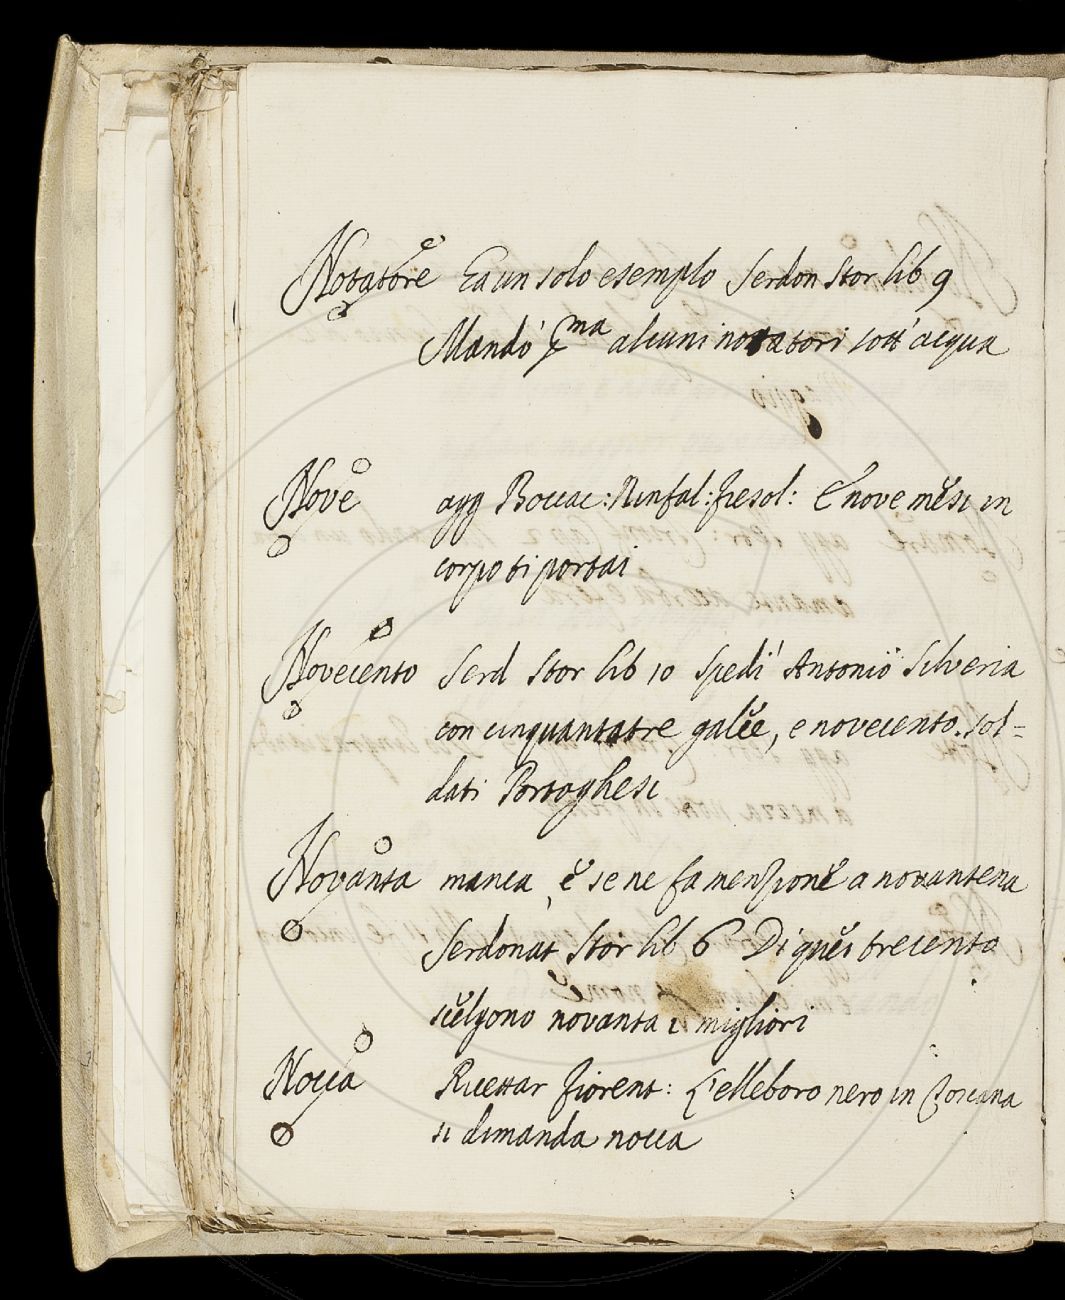 Notatore Ea un solo esemplo Serdon Stor lib 9
Mandò alcuni notatori sott'acqua
Nove agg Boccac: Ninfal: fiesol: E nove mesi in
corpo ti portai
Novecento Serd Stor lib 10 Spedì Antonio Silveria
con cinquantatre galee, e novecento sol=
dati Portoghesi
Novanta manca, e se ne fa menzione a novantena
Serdonat Stor lib 6 Di quei trecento
scelgono novanta i migliori
Nocca Ricettar fiorent: L'elleboro nero in Toscana
si dimanda nocca